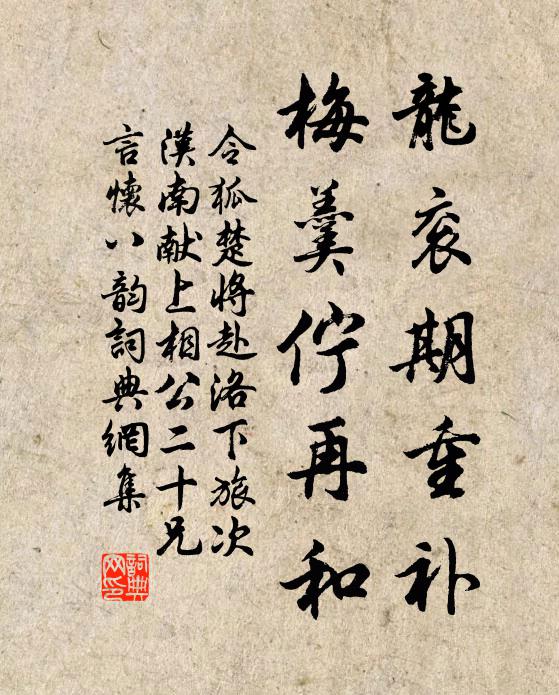 龍衮期重补
梅羹佇再和
令狐楚将赴洛下旅次
漢南献上相公二十兄
言懷八韵詞典網集
詞典网印